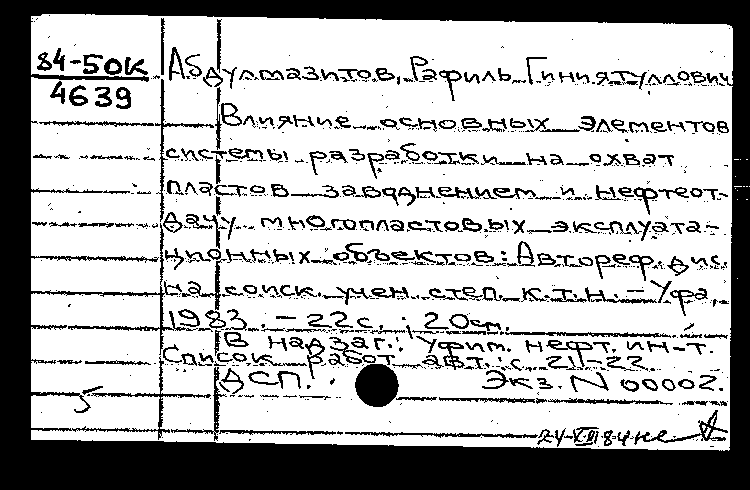 84-50К
4639
Абдулмазитов, Рафиль Гиниятуллович
Влияние основных элементов
системы разработки на охват
пластов заводнением и нефтеот-
дачу многопластовых эксплуата-
ционных объектов: Автореф. дис.
на соиск. учен. степ. к.т.н. – Уфа,
1983. – 22с. ; 20см.
В надзаг.: Уфим. нефт. ин-т.
Список работ авт.: с. 21-22.
ДСП. Экз. N 00002.
5
24-XII 84